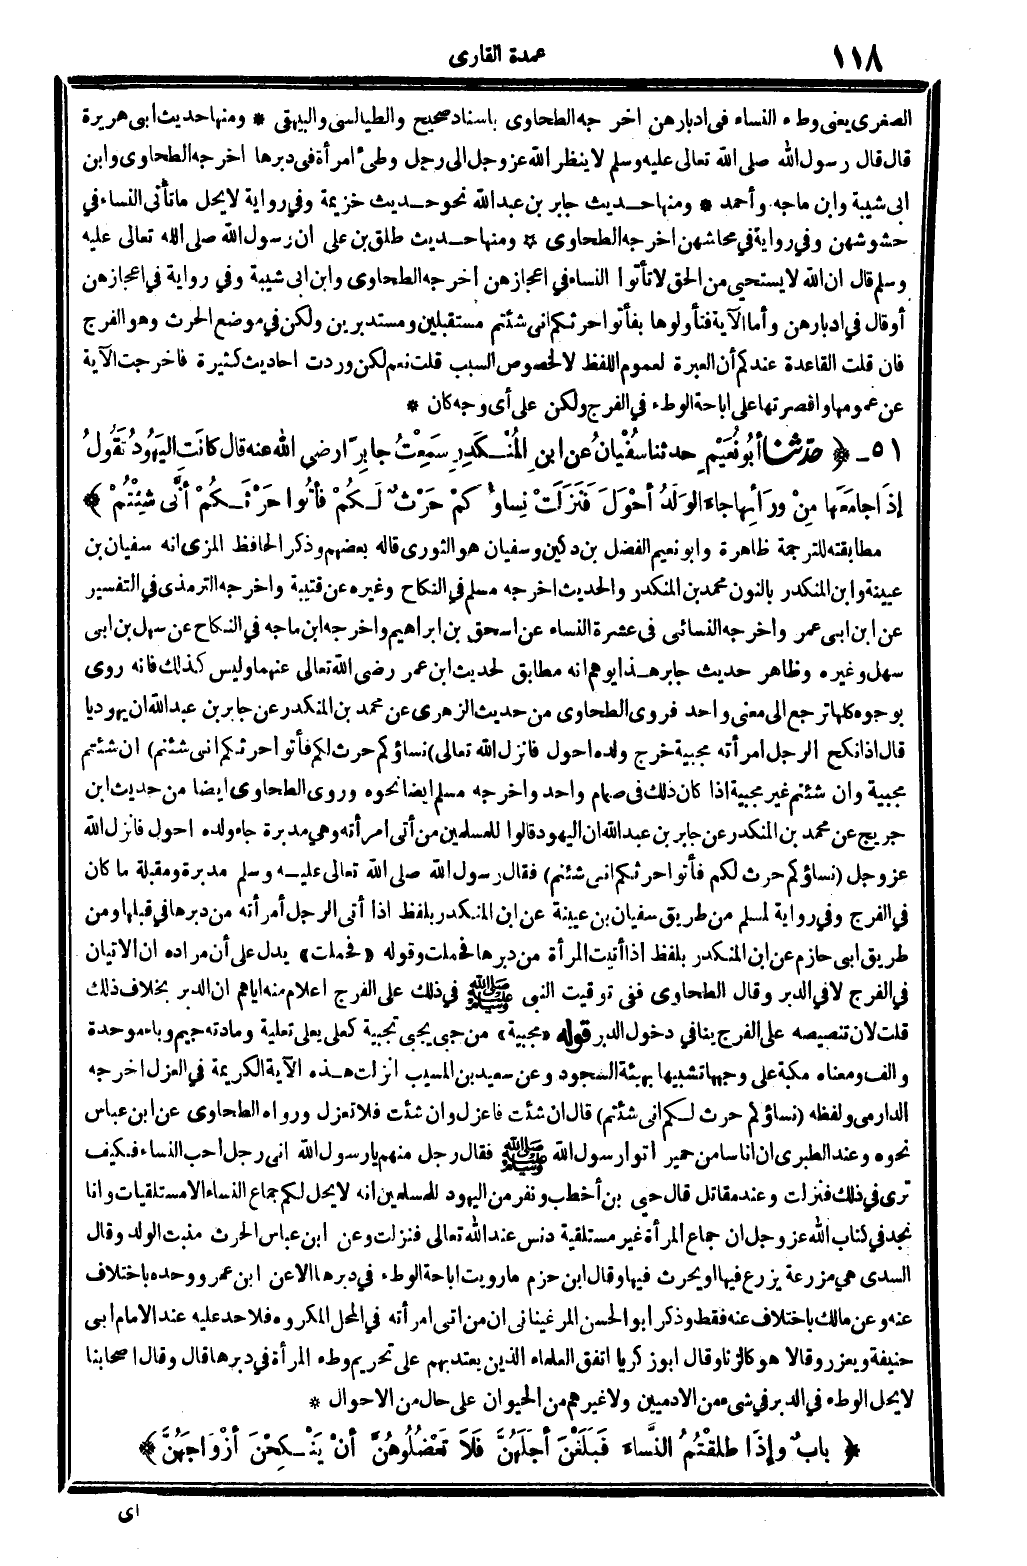 ١١٨
عمدة القارى
الصغرى يعنى وطء النساء فى ادبارهن اخرجه الطحاوى باسناد صحيح والطيالسى والبيهقى * ومنها حديث ابى هريرة
قال قال رسول الله صلى الله تعالى عليه وسلم لا ينظر الله عز وجل الى رجل وطىء امرأة فى دبرها اخرجه الطحاوى وابن
ابى شيبة وابن ماجه وأحمد * ومنها حديث جابر بن عبد الله نحو حديث خزيمة وفى رواية لا يحل ما تأتى النساء فى
حشوشهن وفى رواية فى محاشهن اخرجه الطحاوى * ومنها حديث طلق بن على ان رسول الله صلى الله تعالى عليه
وسلم قال ان الله لا يستحيى من الحق لا تأتوا النساء فى اعجازهن أخرجه الطحاوى وابن ابى شيبة وفى رواية فى اعجازهن
أو قال فى ادبارهن وأما الآية فتأولوها بفأتوا حرثكم انى شئتم مستقبلين ومستدبرين ولكن فى موضع الحرث وهو الفرج
فان قلت القاعدة عندكم أن العبرة لعموم اللفظ لا لخصوص السبب قلت نعم لكن وردت احاديث كثيرة فاخرجت الآية
عن عمومها واقصرتها على اباحة الوطء فى الفرج ولكن على أى وجه كان *
٥١ ـ ﴿ حَدَّثَنَا أَبُو نُعَيْمٍ حدثنا سُفْيَانُ عن ابنِ المُنْكَدِرِ سَمِعْتُ جابِرًا رضى الله عنه قال كانَتِ اليَهُودُ تَقُولُ
إذَا جامَعَها مِنْ ورَائِها جاءَ الوَلَدُ أحْوَلَ فَنَزَلَتْ نِساؤُكُمْ حَرْثٌ لَكُمْ فأْتُوا حَرْثَكُمْ أنَّى شِئْتُمْ ﴾
مطابقته للترجمة ظاهرة وابو نعيم الفضل بن دكين وسفيان هو الثورى قاله بعضهم وذكر الحافظ المزى انه سفيان بن
عيينة وابن المنكدر بالنون محمد بن المنكدر والحديث اخرجه مسلم فى النكاح وغيره عن قتيبة واخرجه الترمذى فى التفسير
عن ابن ابى عمر واخرجه النسائى فى عشرة النساء عن اسحق بن ابراهيم واخرجه ابن ماجه فى النكاح عن سهل بن ابى
سهل وغيره وظاهر حديث جابر هذا يوهم انه مطابق لحديث ابن عمر رضى الله تعالى عنهما وليس كذلك فانه روى
بوجوه كلها ترجع الى معنى واحد فروى الطحاوى من حديث الزهرى عن محمد بن المنكدر عن جابر بن عبد الله ان يهوديا
قال اذا نكح الرجل امرأته مجبية خرج ولده احول فانزل الله تعالى (نساؤكم حرث لكم فأتوا حرثكم انى شئتم) ان شئتم
مجبية وان شئتم غير مجبية اذا كان ذلك فى صمام واحد واخرجه مسلم ايضا نحوه وروى الطحاوى ايضا من حديث ابن
جريج عن محمد بن المنكدر عن جابر بن عبد الله ان اليهود قالوا للمسلمين من أتى امرأته وهى مدبرة جاء ولده احول فانزل الله
عز وجل (نساؤكم حرث لكم فأتوا حرثكم انى شئتم) فقال رسول الله صلى الله تعالى عليه وسلم مدبرة ومقبلة ما كان
فى الفرج وفى رواية لمسلم من طريق سفيان بن عيينة عن ابن المنكدر بلفظ اذا أتى الرجل أمرأته من دبرها فى قبلها ومن
طريق ابى حازم عن ابن المنكدر بلفظ اذا أتيت المرأة من دبرها فحملت وقوله «فحملت» يدل على أن مراده ان الاتيان
فى الفرج لا فى الدبر وقال الطحاوى ففى توقيت النبى ﷺ فى ذلك على الفرج اعلام منه اياهم ان الدبر بخلاف ذلك
قلت لان تنصيصه على الفرج ينافى دخول الدبر قوله «مجبية» من جبى يجبى تجبية كعلى يعلى تعلية ومادته جيم وباء موحدة
والف ومعناه مكبة على وجهها تشبيها بهيئة السجود وعن سعيد بن المسيب انزلت هذه الآية الكريمة فى العزل اخرجه
الدارمى ولفظه (نساؤكم حرث لكم انى شئتم) قال ان شئت فاعزل وان شئت فلا تعزل ورواه الطحاوى عن ابن عباس
نحوه وعند الطبرى ان اناسا من حمير اتوا رسول الله ﷺ فقال رجل منهم يا رسول الله انى رجل أحب النساء فكيف
ترى فى ذلك فنزلت وعند مقاتل قال حيى بن أخطب ونفر من اليهود للمسلمين انه لا يحل لكم جماع النساء الا مستلقيات وانا
نجد فى كتاب الله عز وجل ان جماع المرأة غير مستلقية دنس عند الله تعالى فنزلت وعن ابن عباس الحرث منبت الولد وقال
السدى هى مزرعة يزرع فيها او يحرث فيها وقال ابن حزم ما رويت اباحة الوطء فى دبرها الا عن ابن عمر وحده باختلاف
عنه وعن مالك باختلاف عنه فقط وذكر ابو الحسن المرغينانى ان من اتى امرأته فى المحل المكروه فلا حد عليه عند الامام ابى
حنيفة ويعزر وقالا هو كالزنا وقال ابو زكريا اتفق العلماء الذين يعتد بهم على تحريم وطء المرأة فى دبرها قال وقال اصحابنا
لا يحل الوطء فى الدبر فى شىء من الادميين ولا غيرهم من الحيوان على حال من الاحوال *
﴿ بابٌ وإذَا طلقْتُمُ النِّساءَ فَبَلَغْنَ أجَلَهُنَّ فَلاَ تَعْضُلُوهُنَّ أنْ يَنْكِحْنَ أزْوَاجَهُنَّ ﴾
اى